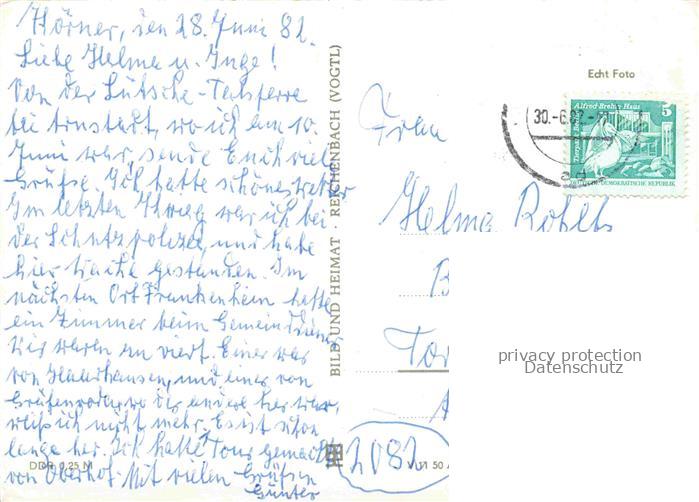 Hörner, den 28. Juni 82.
Liebe Helma u. Inge!
Von der Lütsche-Talsperre
bei Arnstadt, wo ich am 10.
Juni war, sende Euch viel
Grüße. Ich hatte schönes Wetter
Im letzten war ich bei
der Schutzpolizei und habe
hier Wache gestanden. Im
nächsten Ort Frankenheim hatte
ein Zimmer beim
Wir waren zu viert. Einer war
von und einer von
Gräfenroda, wo der andere her war,
weiß ich nicht mehr. Es ist schon
lange her. Ich hatte Tour gemacht
von Oberhof. Mit vielen Grüßen
Günter
DDR 0,25 M
BILD UND HEIMAT · REICHENBACH (VOGTL)
V 11 50 A
Echt Foto
Alfred-Brehm-Haus
Tierpark Berlin
5
DEMOKRATISCHE REPUBLIK
30.-6.82
Frau
Helma Rohlts
B
Tor
2082
privacy protection
Datenschutz